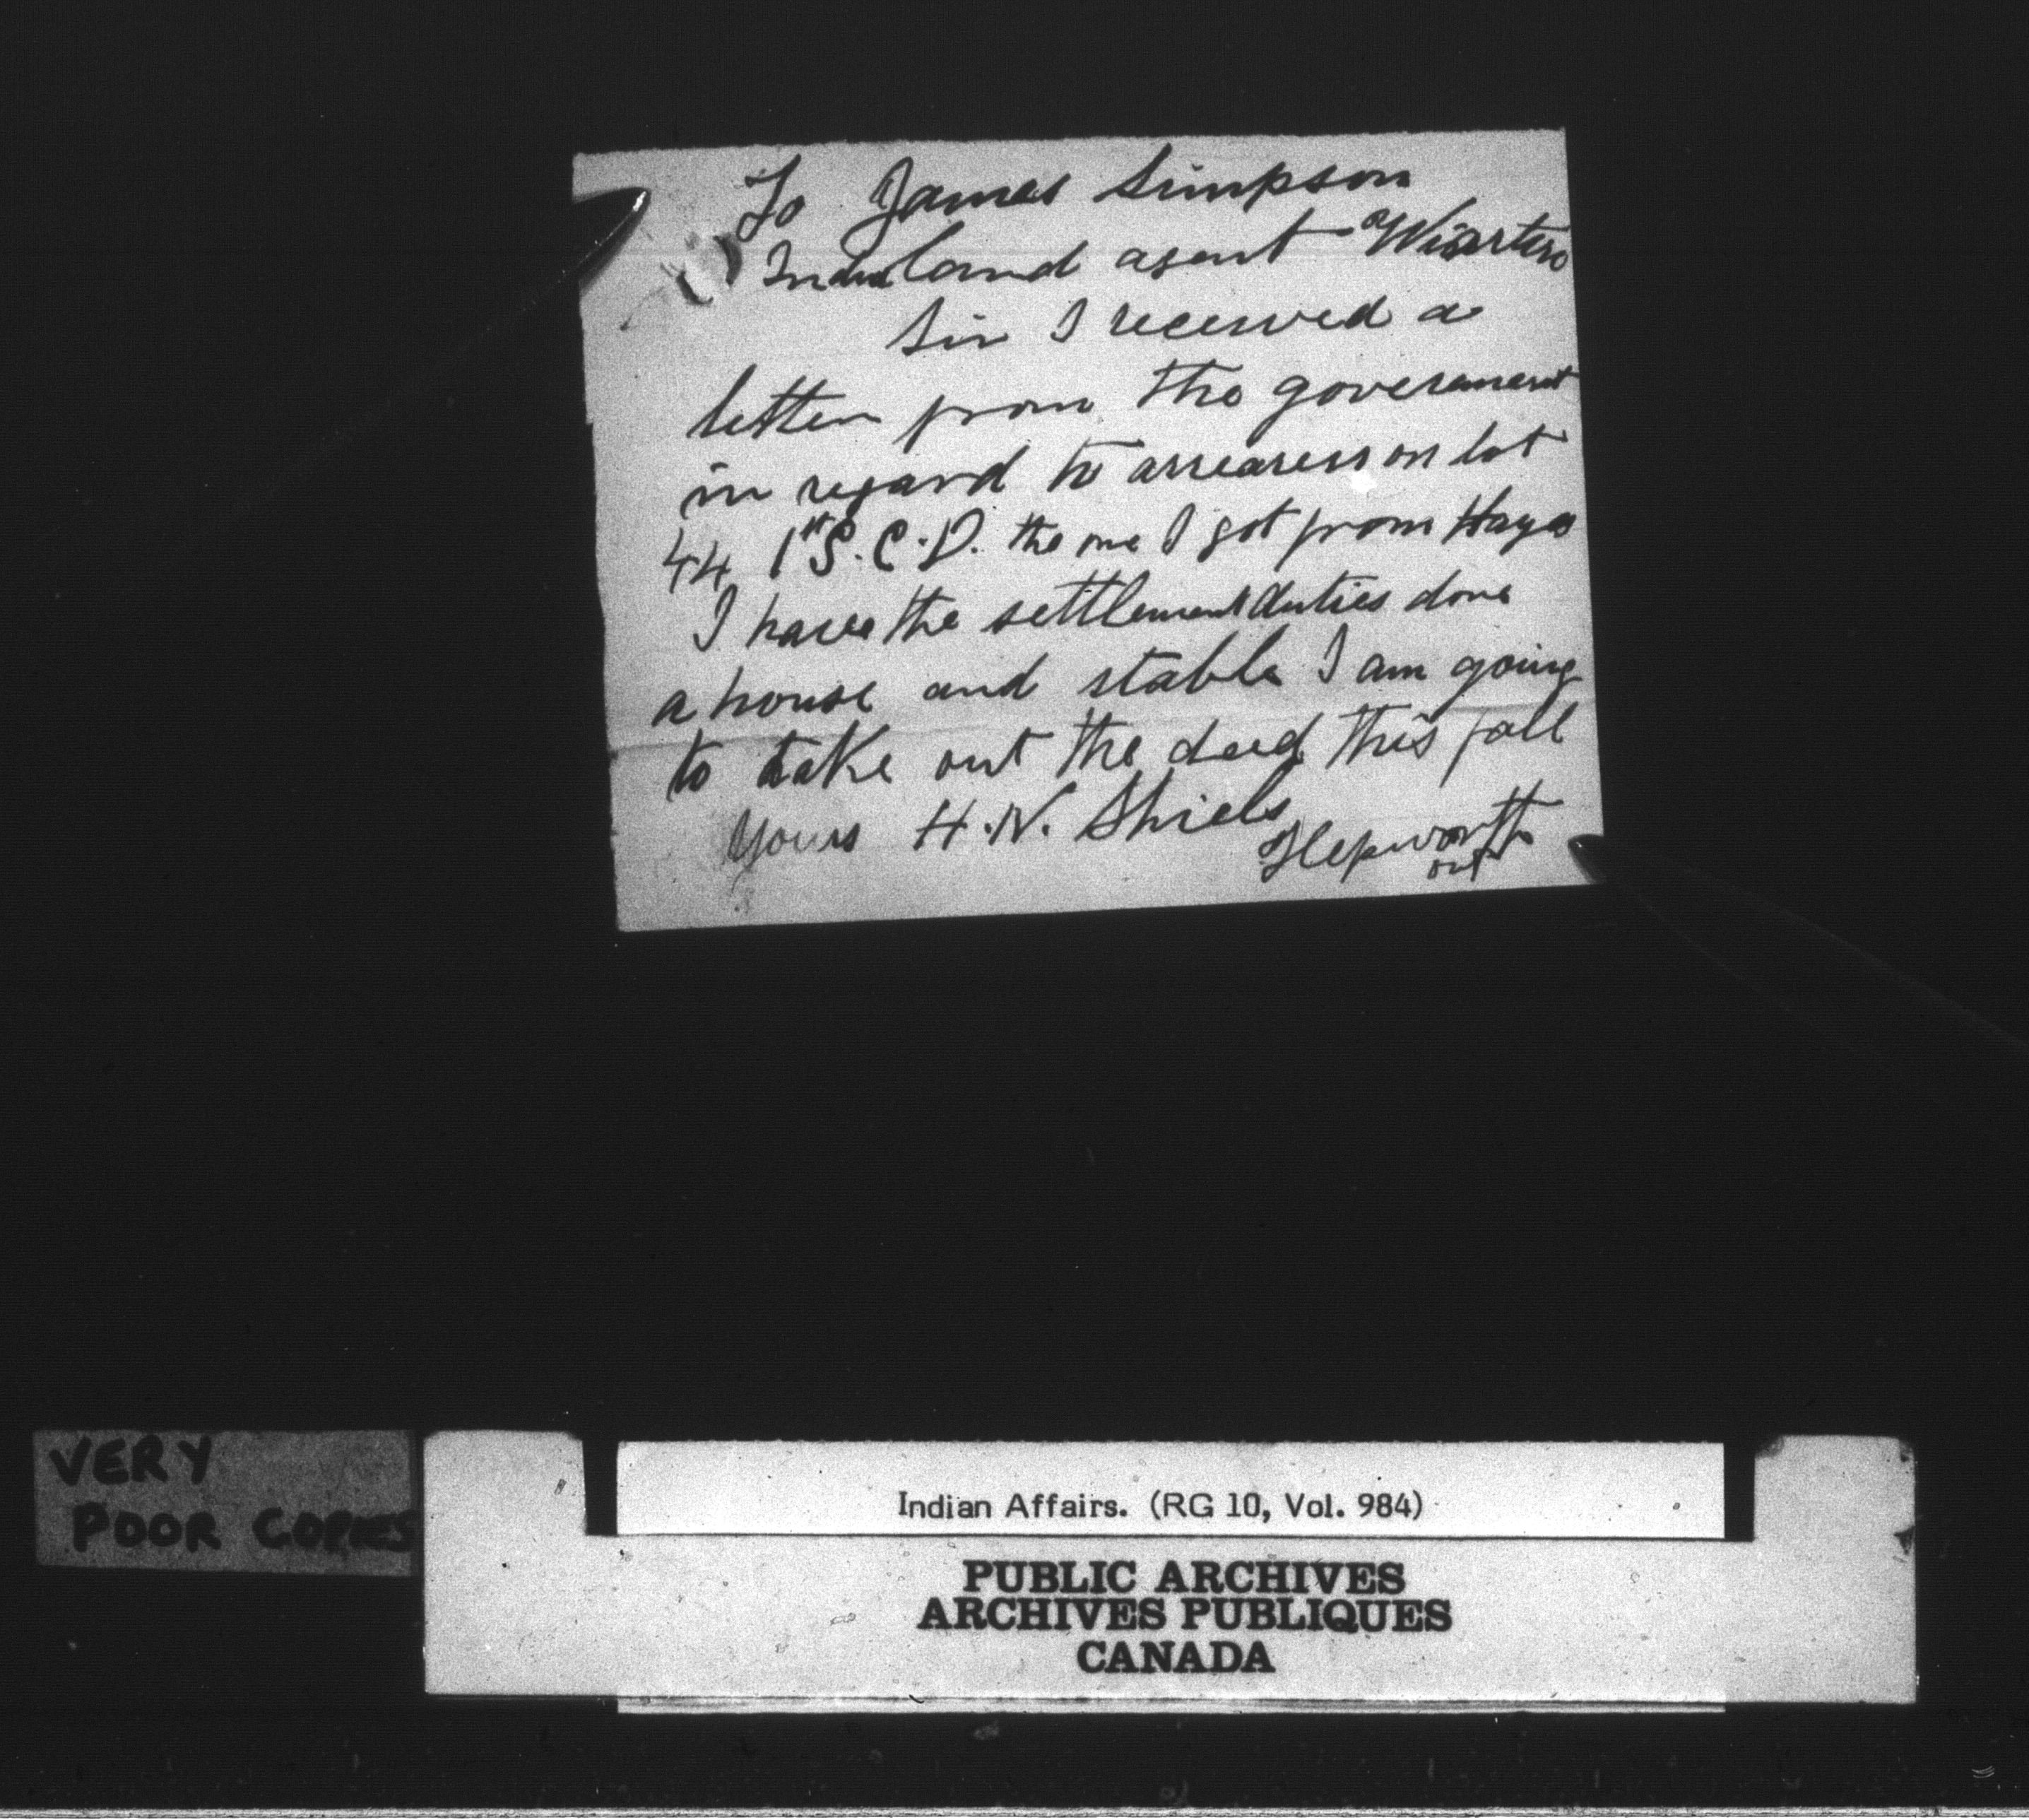 To James Simpson
Indian land agent Wiarton
Sir I received a
letter from the government
in regard to arrearess on lot
44 1st S.C.D. the one I got from Hayes
I have the settlement duties done
a house and stable I am going
to take out the deed this fall
Yours H.N. Shiels
Hepworth
ont
VERY
POOR COPIES
Indian Affairs. (RG 10, Vol. 984)
PUBLIC ARCHIVES
ARCHIVES PUBLIQUES
CANADA